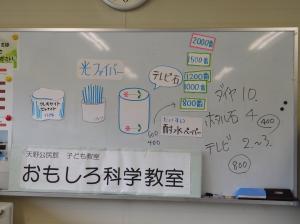 光ファイバー
テレビ石
2000番
1500番
1200番
1000番
800番
600
400
耐水ペーパー
ダイヤ 10.
ホタル石 4
400
テレビ 2~3.
800
天野公民館 子ども教室
おもしろ科学教室